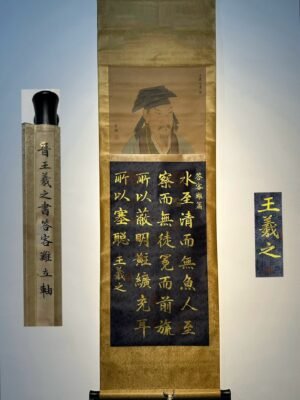 答客難篇
水至清而無魚人至
察而無徒冕而前旒
所以蔽明黈纊充耳
所以塞聰 王羲之
晉王羲之書答客難立軸
王羲之